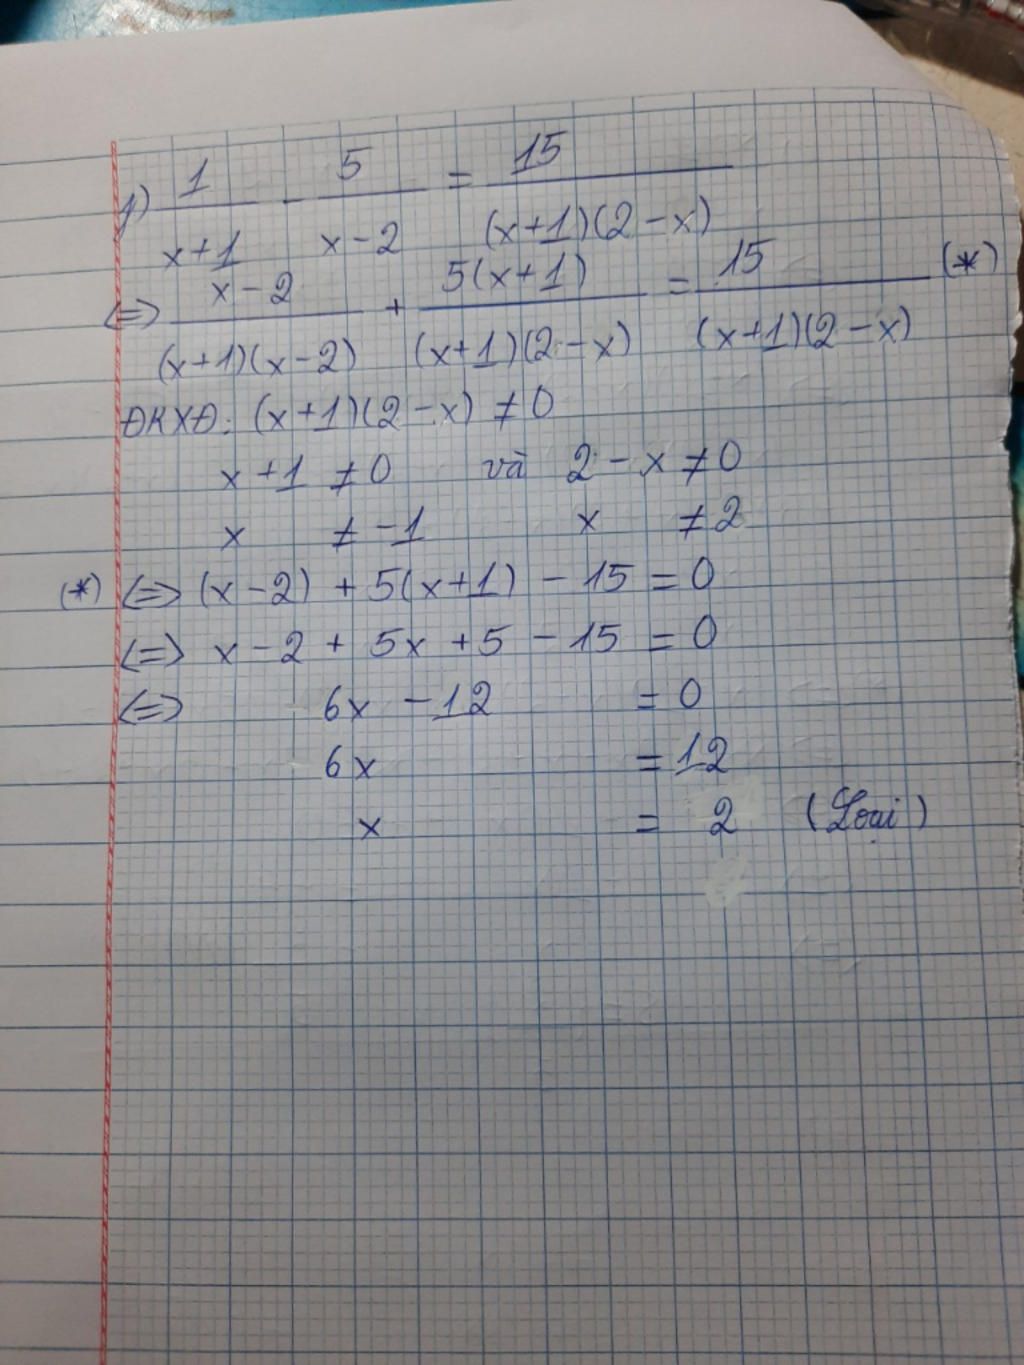 f) 1/(x+1) - 5/(x-2) = 15/((x+1)(2-x))
<=> (x-2)/((x+1)(x-2)) + 5(x+1)/((x+1)(2-x)) = 15/((x+1)(2-x)) (*)
ĐKXĐ: (x+1)(2-x) ≠ 0
x+1 ≠ 0 và 2-x ≠ 0
x ≠ -1 x ≠ 2
(*) <=> (x-2) + 5(x+1) - 15 = 0
<=> x-2 + 5x + 5 - 15 = 0
<=> 6x - 12 = 0
6x = 12
x = 2 (Loại)